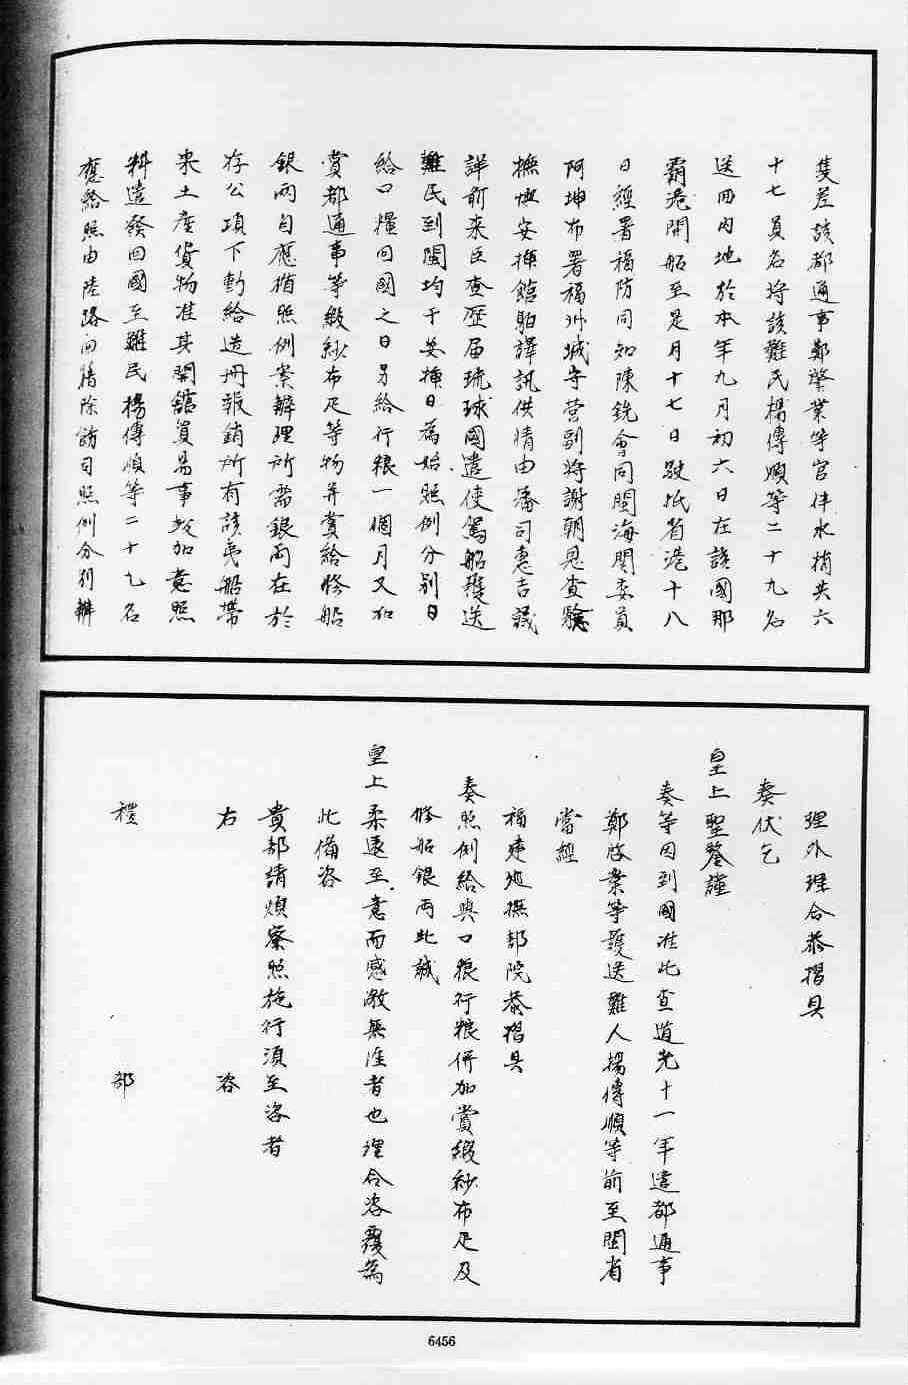 隻差該都通事鄭啓業等官伴水梢共六
十七員名將該難民楊傳順等二十九名
送回內地於本年九月初六日在該國那
霸港開船至是月十七日駛抵省港十八
日經署福防同知陳銑會同閩海關委員
阿坤布署福州城守營副將謝朝恩查驗
撫卹安揷館驛譯訊供情由藩司惠吉議
詳前來臣查歷届琉球國遣使駕船護送
難民到閩均于安揷日為始照例分别日
給口糧回國之日另給行粮一個月又加
賞都通事等緞紗布疋等物并賞給修船
銀兩自應循照例案辦理所需銀兩在於
存公項下動給造册報銷所有該夷船帶
來土産貨物准其開舘貿易事竣加意照
料遣發回國至難民楊傳順等二十九名
應給照由陸路回籍除飭司照例分別辦
理外理合恭摺具
奏伏乞
皇上聖鑒謹
奏等因到國准此查道光十一年遣都通事
鄭啓業等護送難人楊傳順等前至閩省
當經
福建巡撫部院恭摺具
奏照例給與口粮行粮併加賞緞紗布疋及
修船銀兩此誠
皇上柔遠至意而感激無涯者也理合咨覆為
此備咨
貴部請煩察照施行須至咨者
右　咨
禮　部
6456